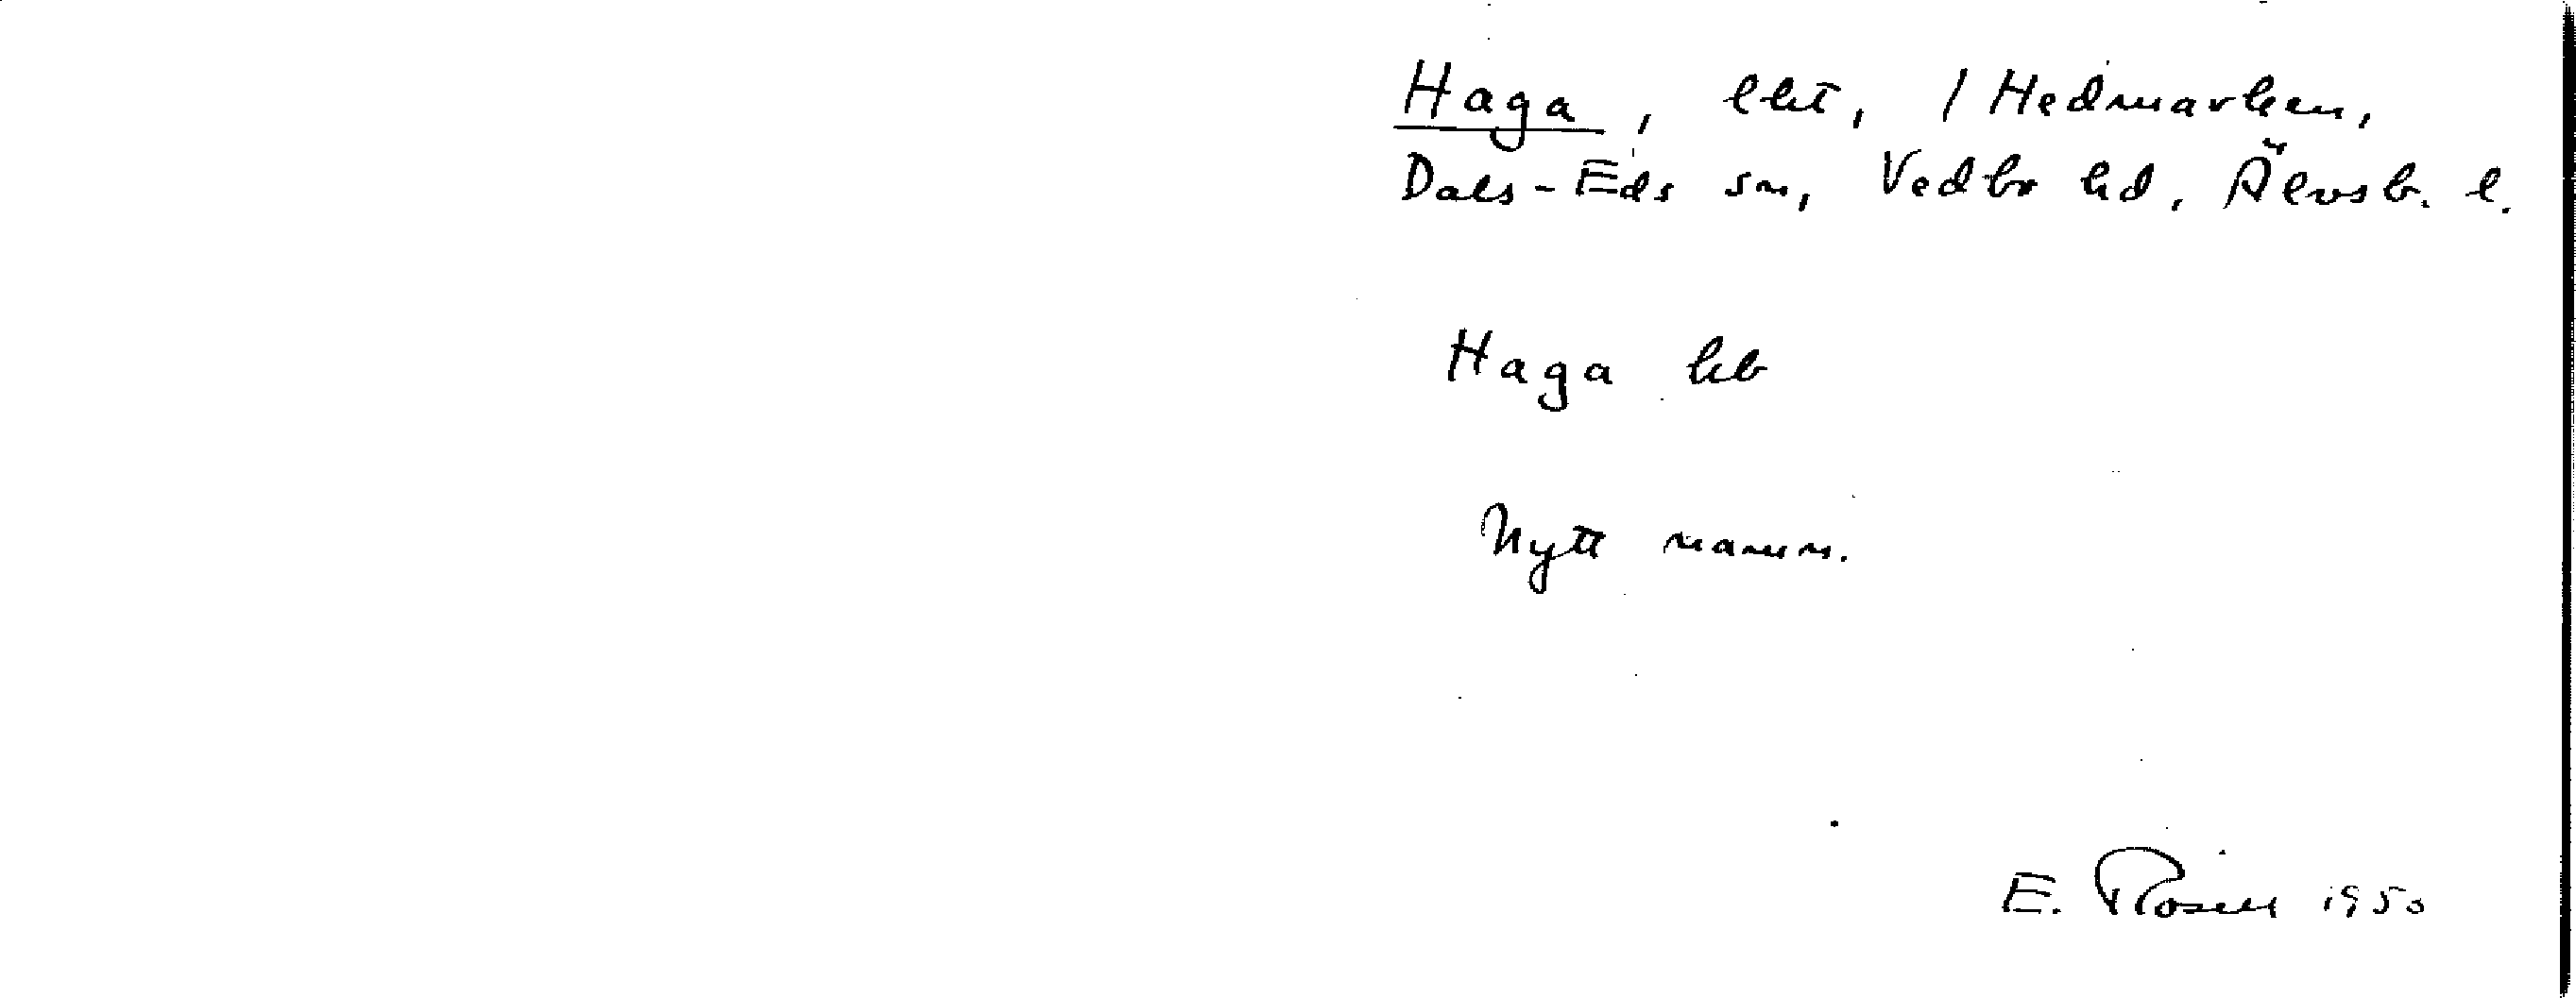 Haga, lht, 1 Hedmarken,
Dals-Eds sn, Vedbo hd, Älvsb. l.
Haga kb
Nytt namn.
E. Rosell 1950